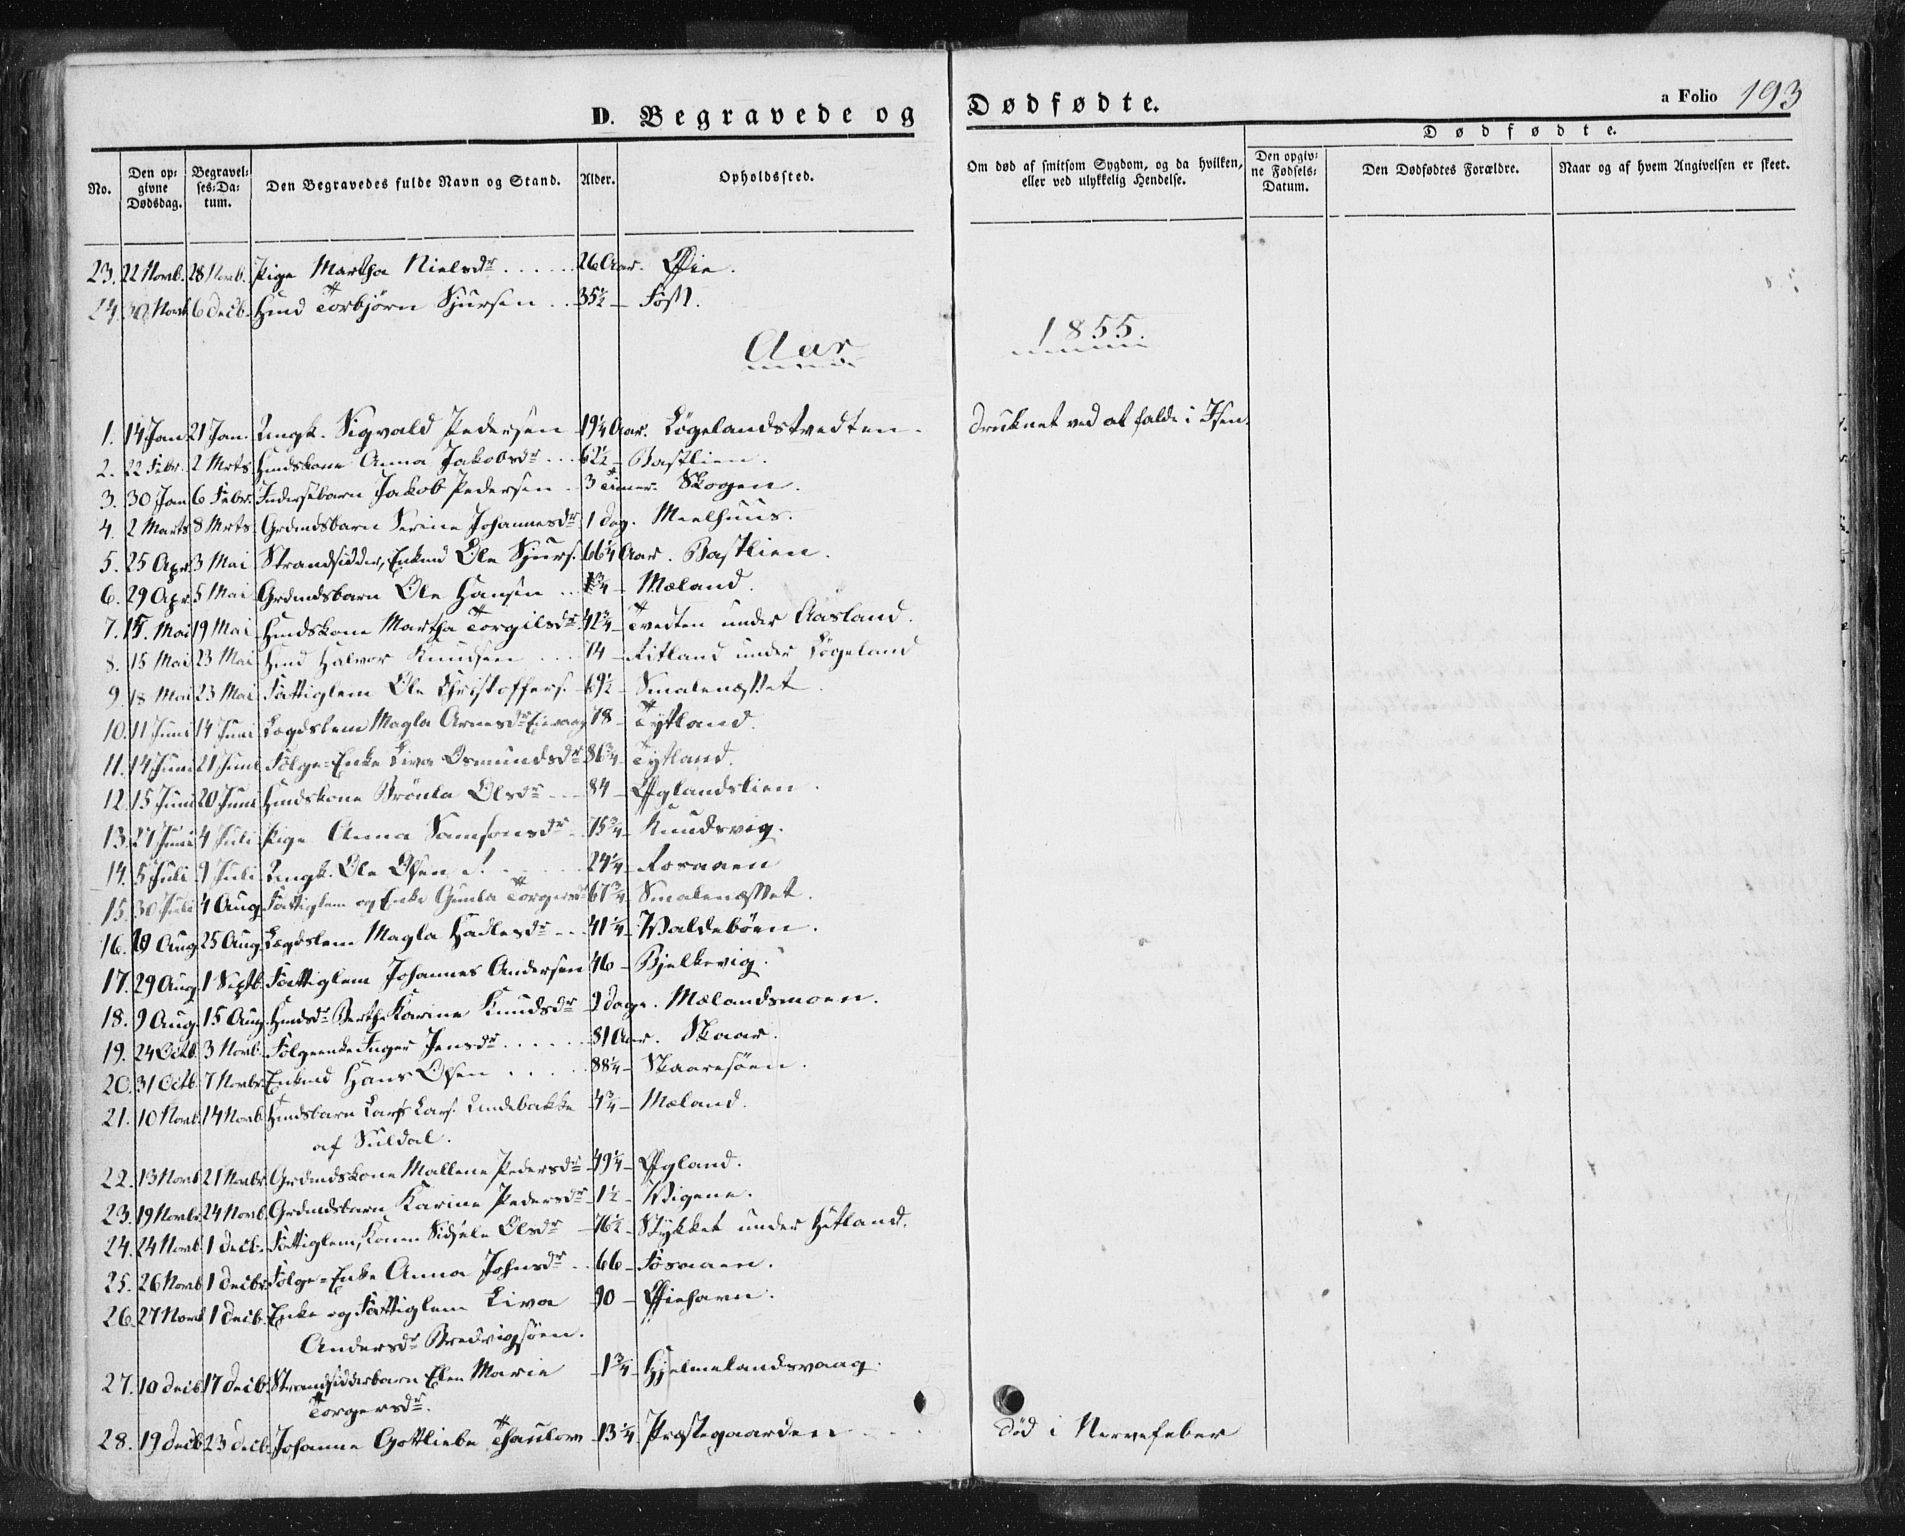 D. Begravede og Dødfødte.
a Folio 193
Dødfødte.
No. Den opgivne Dødsdag. Begravelses-Datum. Den Begravedes fulde Navn og Stand. Alder. Opholdssted. Om død af smitsom Sygdom, og da hvilken, eller ved ulykkelig Hendelse. Den opgivne Fødsels-Datum. Den Dødfødtes Forældre. Naar og af hvem Angivelsen er skeet.
23. 22 Novb. 28 Novb. Pige Martha Nielsdr 26 Aar. Øie.
24. 30 Novb 6 Decb. Hmd Torbjørn Sjursen 35½ –
Aar 1855.
1. 14 Jan 21 Jan. Ungk. Sigvald Pedersen 19¼ Aar. Løgelandstvedten. Druknet ved at falde i Isen.
2. 22 Febr. 2 Mrts Hmdskone Anna Jakobsdr 62½ – Bastlien.
3. 30 Jan 6 Febr. Inderstbarn Jakob Pedersen 3 Timer. Skogen.
4. 2 Marts 8 Mrts Grdmdsbarn Serine Johannesdr 1 Dag. Meelhuus.
5. 25 Apr 3 Mai Strandsidder, Enkmd Ole Sjurs. 66¼ Aar. Bastlien.
6. 29 Apr 5 Mai Grdmdsbarn Ole Hansen ¾ – Mæland.
7. 15. Mai 19 Mai Hmdskone Martha Torgilsdr 42¾ – Tvedten under Aasland.
8. 15 Mai 23 Mai Hmd Halvor Knudsen 74 – Ritland under Løgeland
9. 18 Mai 23 Mai Fattiglem Ole Christoffers. 69½ – Smalenæsset.
10. 11 Juni 14 Juni Lægdslem Magla Arnesdr 78 – Tytland.
11. 14 Juni 21 Juni Følge-Enke Siva Osmundsdr 86¾ – Tytland.
12. 15 Juni 20 Juni Hmdskone Brønla Olsdr 84 – Øglandslien.
13. 27 Juni 4 Juli Pige Anna Samsonsdr 75¾ – Knudsvig.
14. 5 Juli 9 Juli Ungk. Ole Olsen 24¼ – Fosaaen
15. 30 Juli 4 Aug. Fattiglem og Enke Gunla Torgersdr 67¾ – Smalenæsset.
16. 19 Aug. 25 Aug. Lægdslem Magla Hadlesdr 41¼ – Waldebøen.
17. 29 Aug. 1 Septb. Fattiglem Johannes Andersen 46 – Bjelkevig.
18. 9 Aug. 15 Aug. Hmdsdr Berthe Karine Knudsdr 9 Dage. Mælandsmoen.
19. 24 Octb. 3 Novb. Følgeenke Inger Jensdr 81 Aar. Skaar.
20. 31 Octb. 7 Novbr. Enkmd Hans Olsen 88¼ – Skaaresøen.
21. 10 Novb. 14 Novb. Hmdsbarn Lars Lars. Lindebakke 4¾ – Mæland.
af Suldal.
22. 13 Novb 21 Novbr. Grdmdskone Mallene Pedersdr 49¼ – Øgland.
23. 19 Novbr. 24 Novb. Grdmdsbarn Karine Pedersdr 1½ – Wigene.
24. 24 Novb. 1 Decb. Fattiglem, Konen Sidsele Olsdr 76½ – Stykket under Hetland.
25. 26 Novb 1 Decbr. Følge-Enke Anna Johnsdr 66 – Fosaaen.
26. 27 Novb 1 Decb. Enke og Fattiglem Siva 90 – Øiehavn.
Andersdr Bredvigsøen.
27. 10 Decb. 17 Decb. Strandsidderbarn Elen Marie 1¾ – Hjelmelandsvaag.
Torgersdr.
28. 19 Decb. 23 Decb. Johanne Gottliebe Thaulow 13¼ Præstegaarden Død i Nervefeber